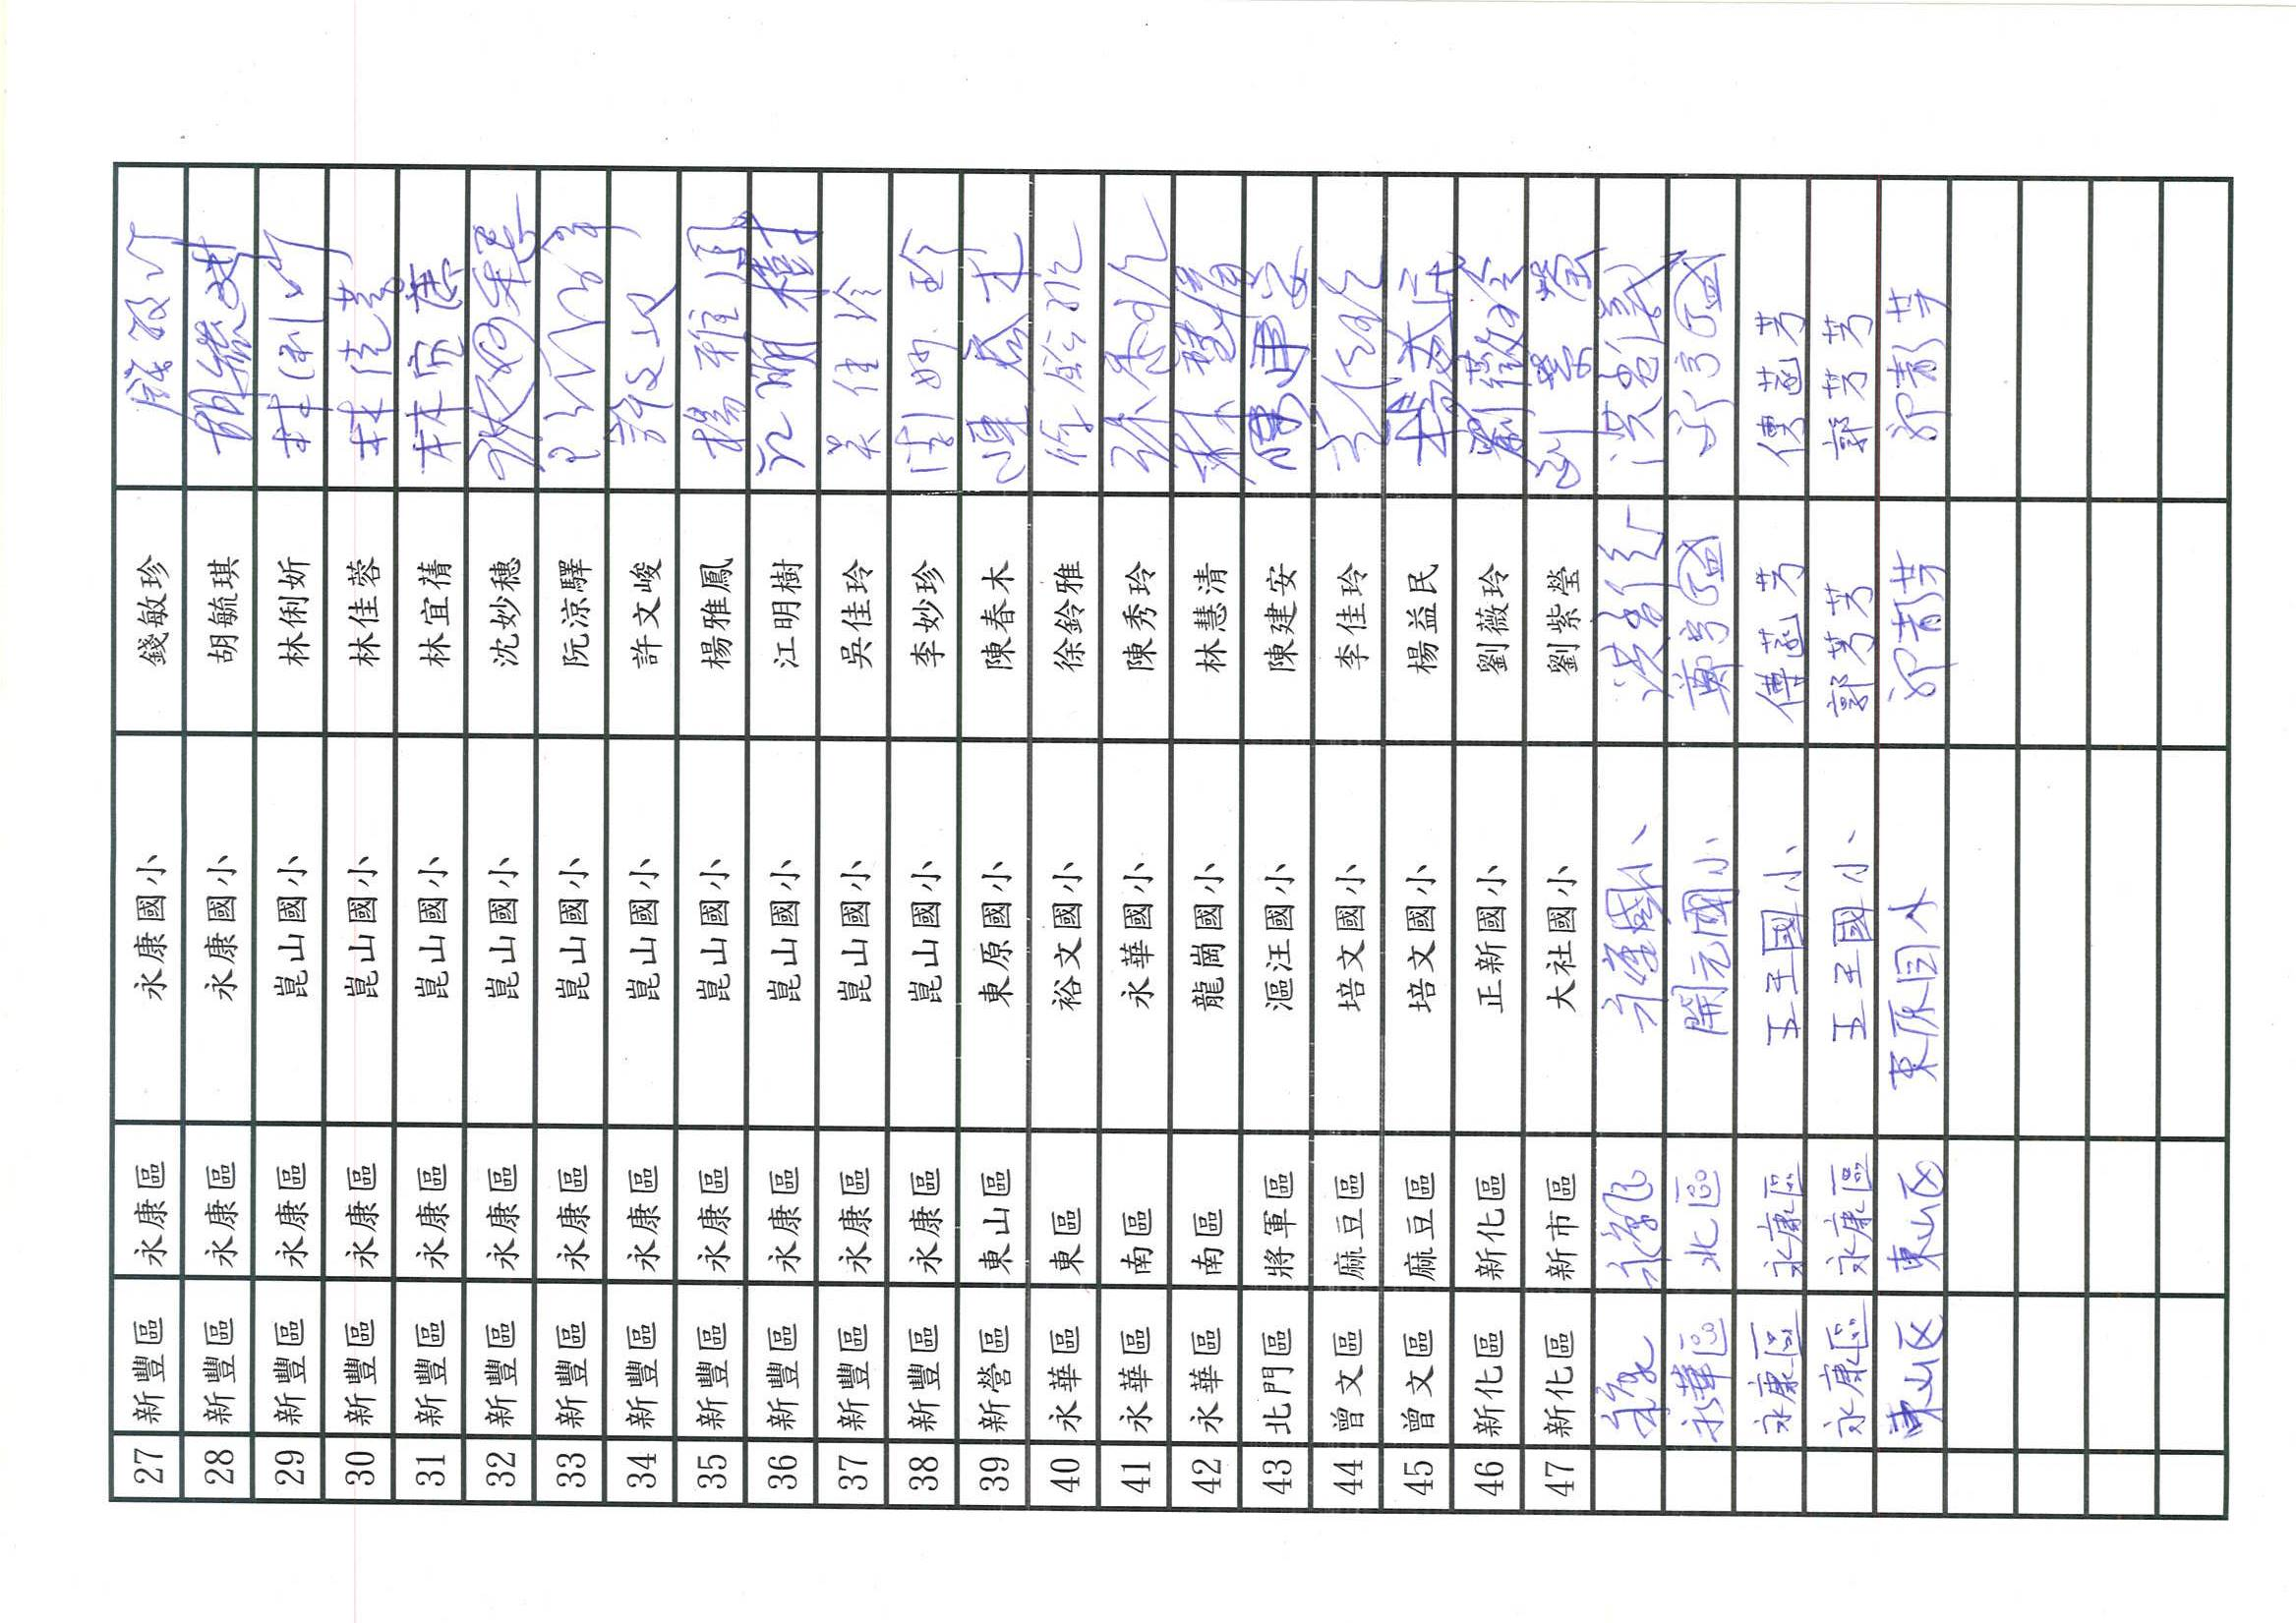 27 新豐區 永康區 永康國小 錢敏珍
28 新豐區 永康區 永康國小 胡毓琪 胡毓琪
29 新豐區 永康區 崑山國小 林俐妡 林俐妡
30 新豐區 永康區 崑山國小 林佳蓉 林佳蓉
31 新豐區 永康區 崑山國小 林宜蒨 林宜蒨
32 新豐區 永康區 崑山國小 沈妙穗 沈妙穗
33 新豐區 永康區 崑山國小 阮涼驛
34 新豐區 永康區 崑山國小 許文峻 許文峻
35 新豐區 永康區 崑山國小 楊雅鳳 楊雅鳳
36 新豐區 永康區 崑山國小 江明樹 江明樹
37 新豐區 永康區 崑山國小 吳佳玲 吳佳玲
38 新豐區 永康區 崑山國小 李妙珍
39 新營區 東山區 東原國小 陳春木 陳春木
40 永華區 東區 裕文國小 徐鈴雅 徐鈴雅
41 永華區 南區 永華國小 陳秀玲
42 永華區 南區 龍崗國小 林慧清 林慧清
43 北門區 將軍區 漚汪國小 陳建安 陳建安
44 曾文區 麻豆區 培文國小 李佳玲
45 曾文區 麻豆區 培文國小 楊益民 楊益民
46 新化區 新化區 正新國小 劉薇玲 劉薇玲
47 新化區 新市區 大社國小 劉紫瑩 劉紫瑩
永華區 北區 開元國小
永康區 永康區 五王國小 傅菀芳 傅菀芳
永康區 永康區 五王國小 郭芳芳 郭芳芳
東山区 東山区 東原国小